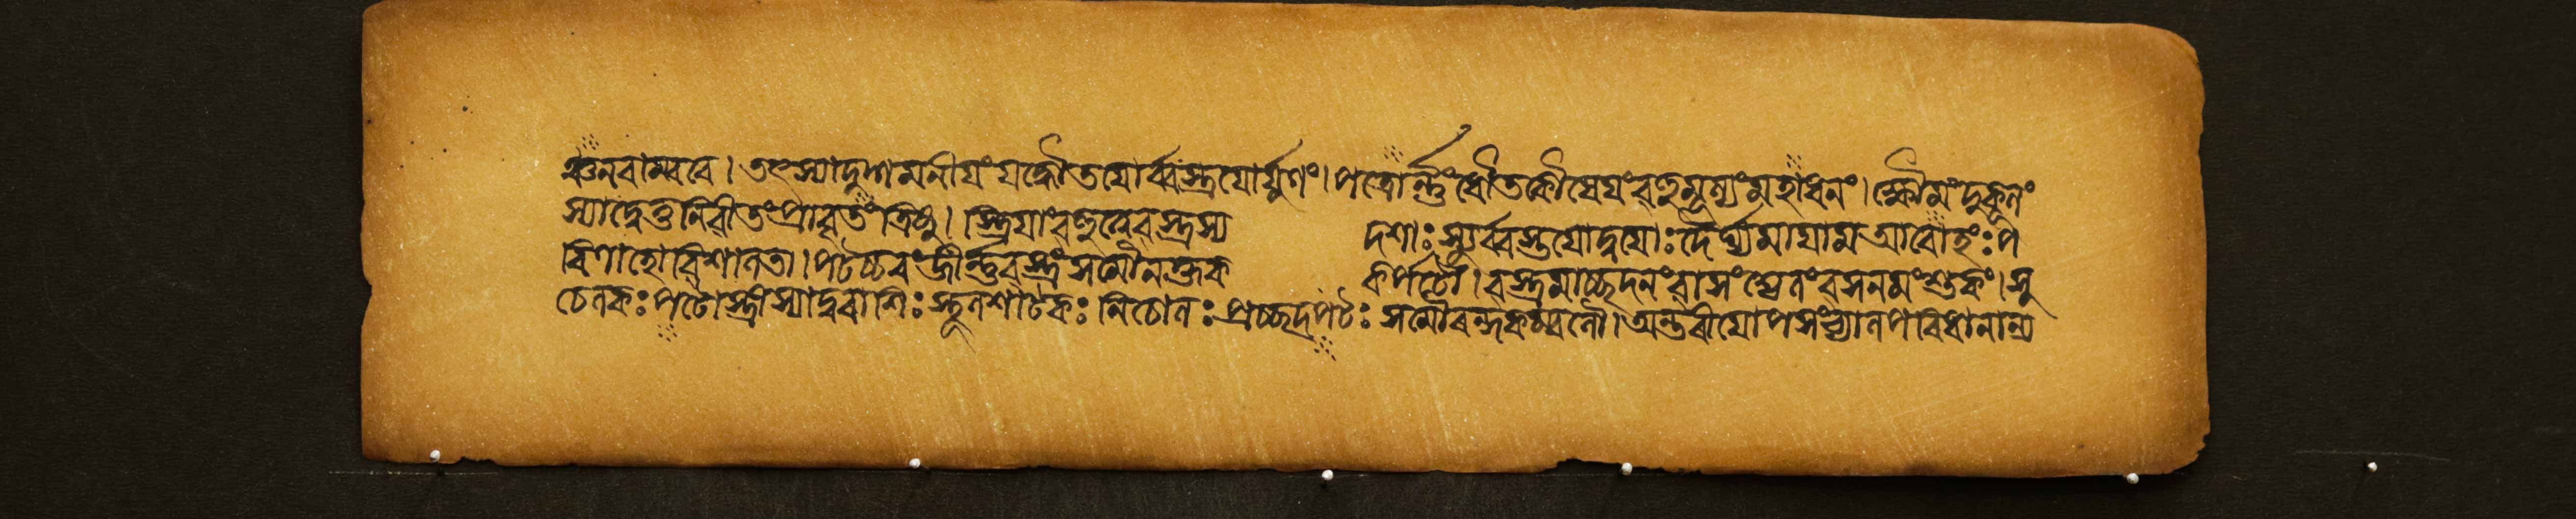 ঞ্চনবাম্বরে। তৎস্যাদুদ্গমনীযং যদ্ধৌতযোর্ব্বস্ত্রযোর্যুগং। পত্রোর্ন্নং ধৌতকৌষেযং বহুমূল্যং মহাধনং। ক্ষৌমং দুকূলং
স্যাদ্দ্বেতু নিবীতং প্রাবৃতং ত্রিষু। স্ত্রিযাং বহুত্বে বস্ত্রস্য দশাঃ স্যুর্ব্বস্তযোর্দ্বযোঃ দৈর্ঘ্যমাযাম আরোহঃ প
রিণাহো বিশালতা। পটচ্চরং জীর্ন্নবস্ত্রং সমৌ নক্তক কর্পটৌ। বস্ত্রমাচ্ছাদনং বাসশ্চেলং বসনমংশুকং। সু
চেলকঃ পটোস্ত্রীস্যাদ্বরাশিঃ স্থূলশাটকঃ নিচোলঃ প্রচ্ছদপটঃ সমৌ রল্লককম্বলৌ। অন্তরীযোপসংব্যানপরিধানান্য